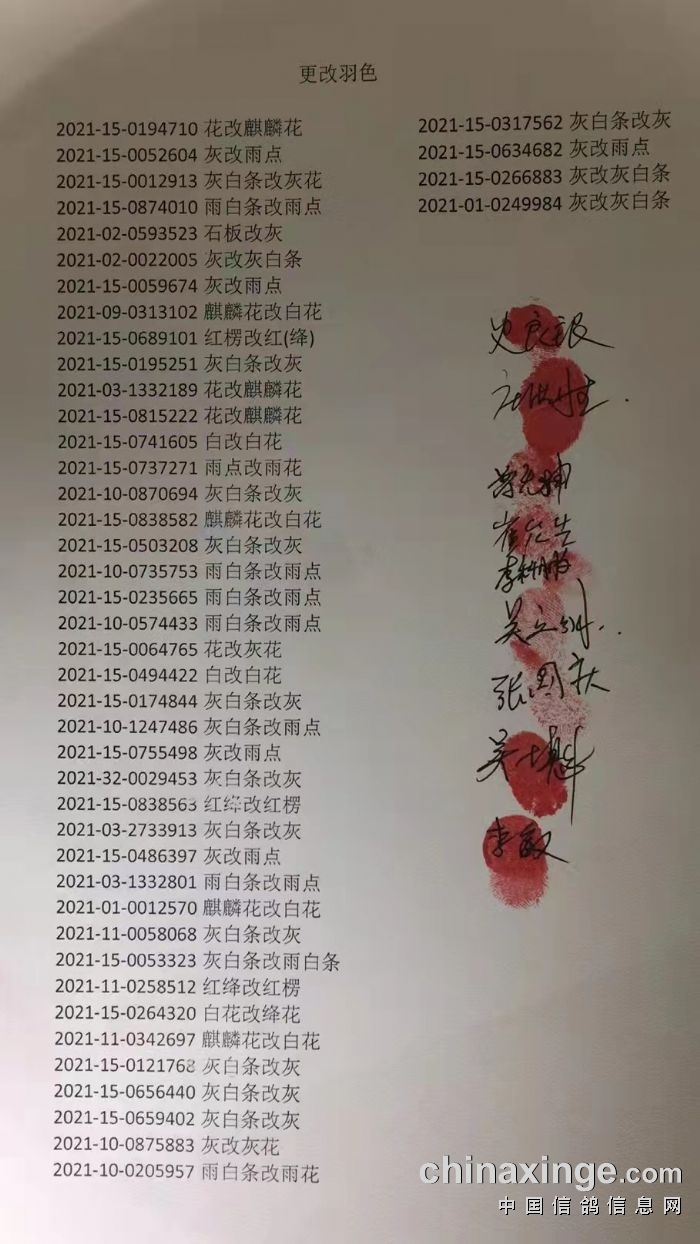 更改羽色
2021-15-0194710 花改麒麟花
2021-15-0052604 灰改雨点
2021-15-0012913 灰白条改灰花
2021-15-0874010 雨白条改雨点
2021-02-0593523 石板改灰
2021-02-0022005 灰改灰白条
2021-15-0059674 灰改雨点
2021-09-0313102 麒麟花改白花
2021-15-0689101 红楞改红(绛)
2021-15-0195251 灰白条改灰
2021-03-1332189 花改麒麟花
2021-15-0815222 花改麒麟花
2021-15-0741605 白改白花
2021-15-0737271 雨点改雨花
2021-10-0870694 灰白条改灰
2021-15-0838582 麒麟花改白花
2021-15-0503208 灰白条改灰
2021-10-0735753 雨白条改雨点
2021-15-0235665 雨白条改雨点
2021-10-0574433 雨白条改雨点
2021-15-0064765 花改灰花
2021-15-0494422 白改白花
2021-15-0174844 灰白条改灰
2021-10-1247486 灰白条改雨点
2021-15-0755498 灰改雨点
2021-32-0029453 灰白条改灰
2021-15-0838563 红绛改红楞
2021-03-2733913 灰白条改灰
2021-15-0486397 灰改雨点
2021-03-1332801 雨白条改雨点
2021-01-0012570 麒麟花改白花
2021-11-0058068 灰白条改灰
2021-15-0053323 灰白条改雨白条
2021-11-0258512 红绛改红楞
2021-15-0264320 白花改绛花
2021-11-0342697 麒麟花改白花
2021-15-0121768 灰白条改灰
2021-15-0656440 灰白条改灰
2021-15-0659402 灰白条改灰
2021-10-0875883 灰改灰花
2021-10-0205957 雨白条改雨花
2021-15-0317562 灰白条改灰
2021-15-0634682 灰改雨点
2021-15-0266883 灰改灰白条
2021-01-0249984 灰改灰白条
史良银
吴立明
张国庆
李敏
chinaxinge.com
中国信鸽信息网